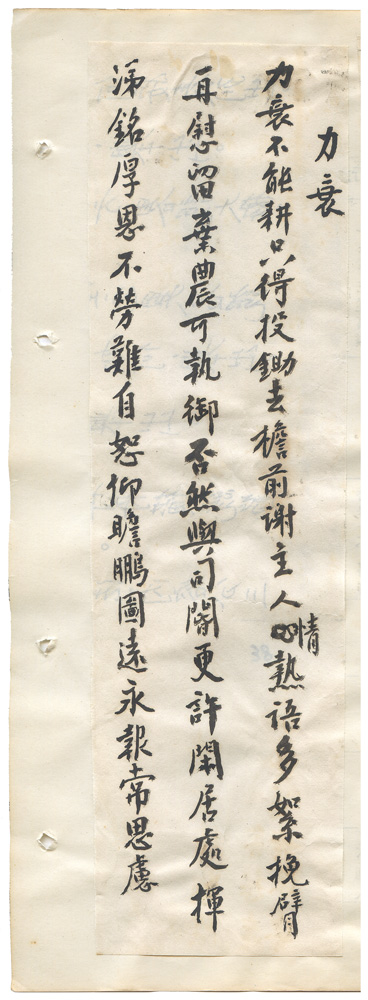 力衰
力衰不能耕只得投鋤去檐前谢主人情熱语多絮挽臂
再慰留棄農可執御否然與司閽更許閑居處揮
涕銘厚恩不勞難自恕仰瞻鵬圖遠永報常思慮